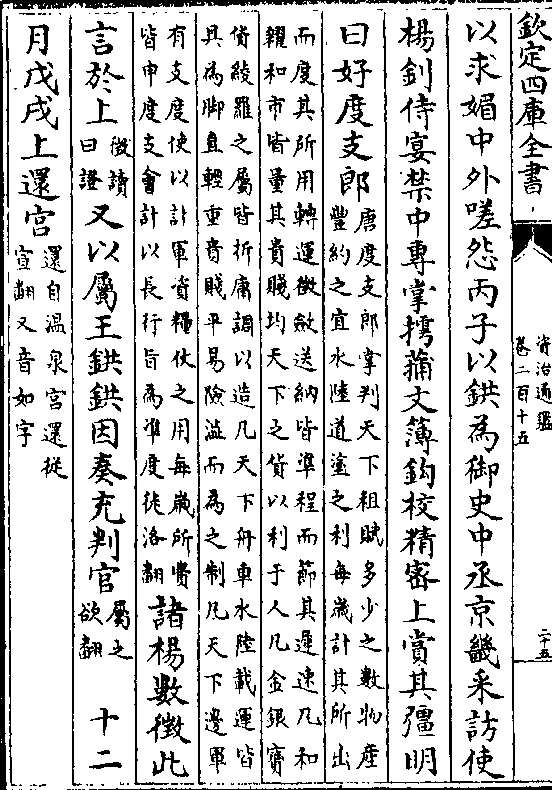 欽定四庫全書
資治通鑑
卷二百十五
二十五
以求媚中外嗟怨丙子以鉷為御史中丞京畿采訪使
楊釗侍宴禁中專掌摴蒱文簿鈎校精密上賞其彊明
曰好度支郎
唐度支郎掌判天下租賦多少之數物産
豐約之宜水陸道塗之利每歲計其所出
而度其所用轉運徵斂送納皆準程而節其遲速凡和
糴和市皆量其貴賤均天下之貨以利于人凡金銀寶
貨綾羅之屬皆折庸調以造凡天下舟車水陸載運皆
具為脚直輕重貴賤平易險澁而為之制凡天下邊軍
有支度使以計軍資糧仗之用每歲所費
皆申度支會計以長行旨為準度徒洛翻
諸楊數徵此
言於上
徴讀
曰證
又以屬王鉷鉷因奏充判官
屬之
欲翻
十二
月戊戌上還宫
還自温泉宫還從
宣翻又音如字